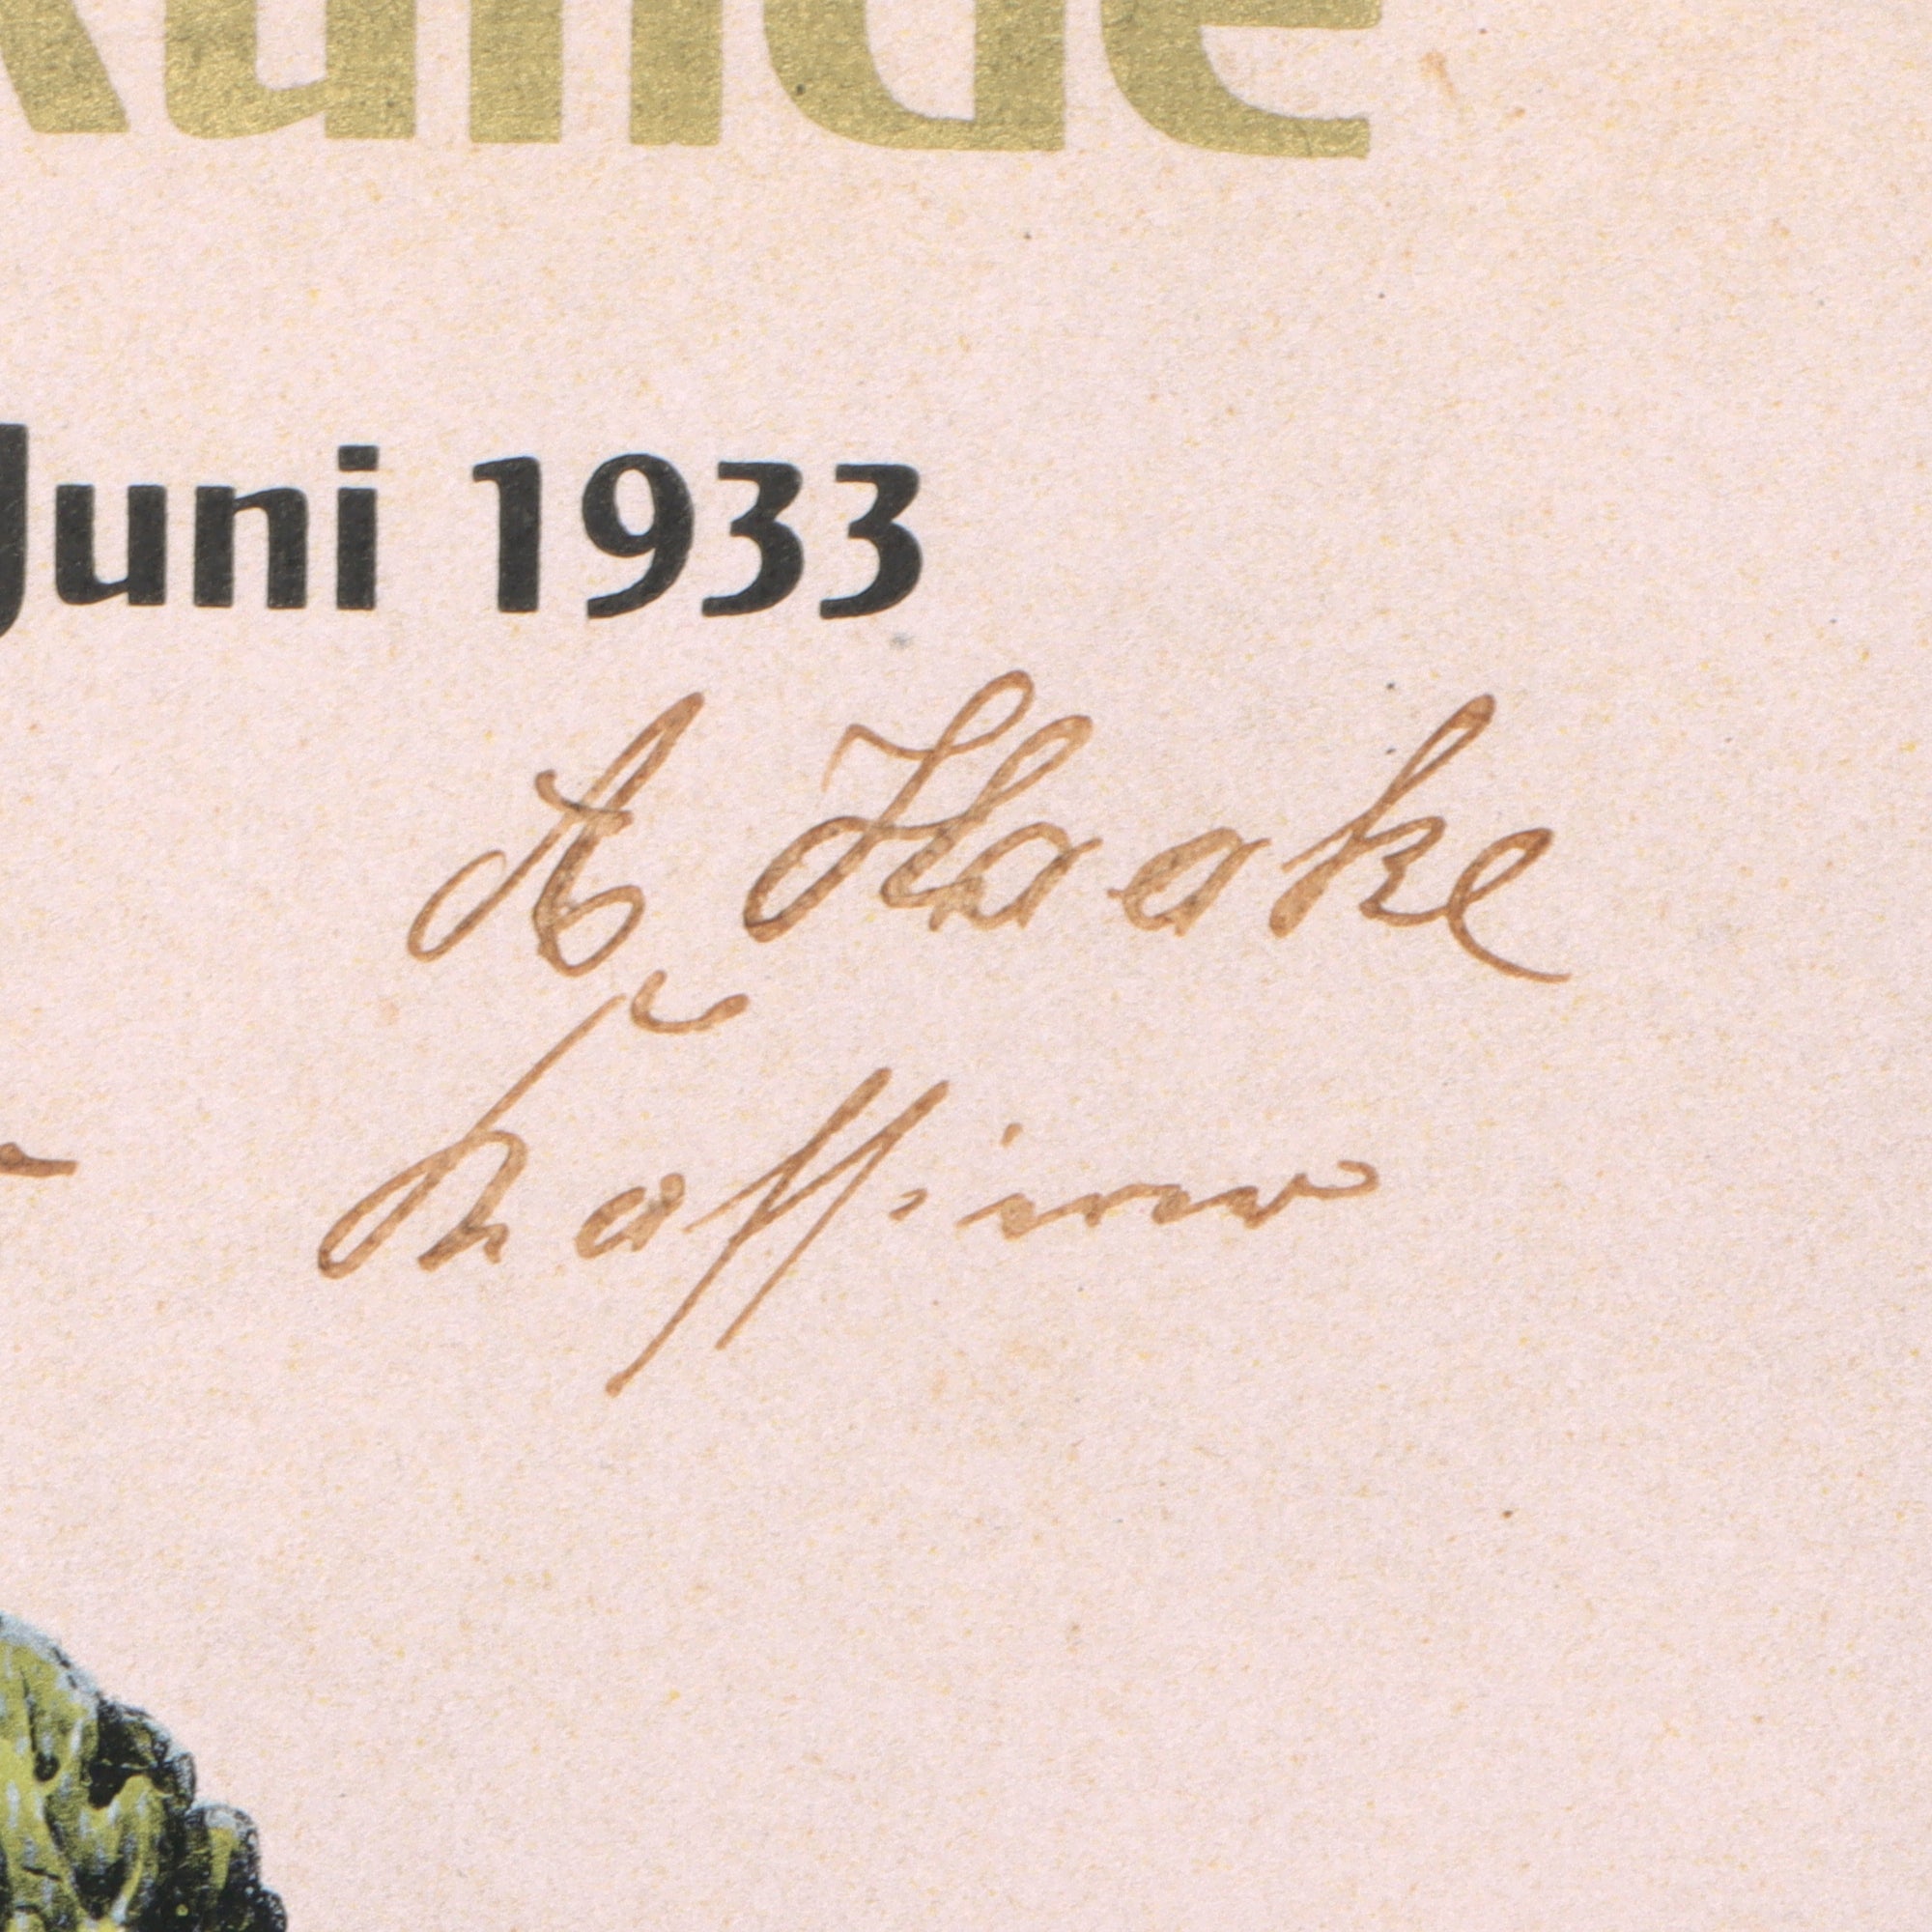 kunde
Juni 1933
A Haake
Kassierer